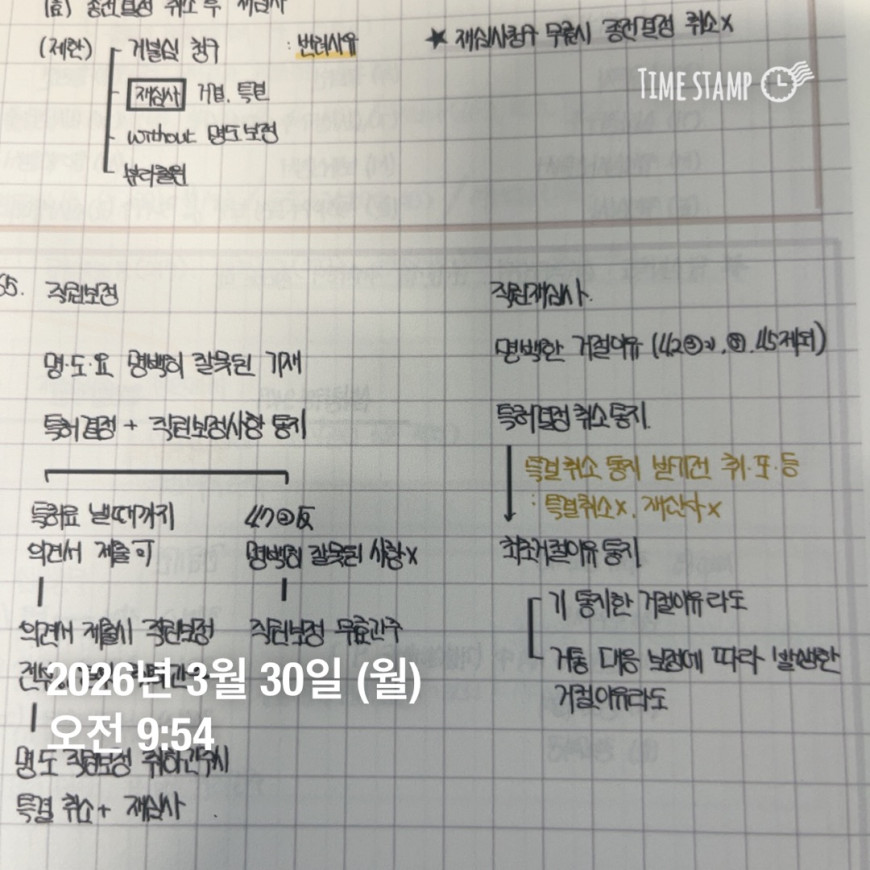 (효) 종전결정 취소 후 재심사
(제한) 거불심 청구 : 반려사유
재심사 거결. 특결
without 명·도 보정
분리출원
★ 재심사청구 무효시 종전결정 취소×
TIME STAMP
직권보정
명·도·요 명백히 잘못된 기재
특허결정 + 직권보정사항 통지
특허료 낼때까지
의견서 제출 可
의견서 제출시 직권보정
명·도 직권보정 취하간주시
특결 취소 + 재심사
47②反
명백히 잘못된 사항×
직권보정 무효간주
직권재심사.
명백한 거절이유
특허결정 취소통지.
특결취소 통지 받기전 취·포·등
: 특결취소×, 재심사×
최초거절이유 통지
기 통지한 거절이유라도
거통 대응 보정에 따라 발생한
거절이유라도
2026년 3월 30일 (월)
오전 9:54